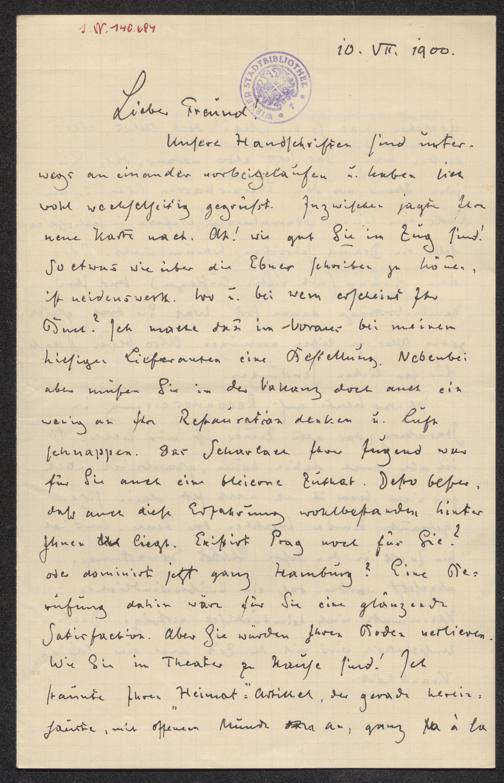 J.N. 140.684
10. VII. 1900.
WIENER STADTBIBLIOTHEK
Lieber Freund!
Unsere Handschriften sind unter-
wegs an einander vorbeigelaufen u. haben sich
wohl wechselseitig gegrüßt. Inzwischen jagte Ihre
neue Karte nach. Ah! wie gut Sie im Zug sind!
So etwas wie über die Ebner schreiben zu können,
ist neidenswerth. Wo u. bei wem erscheint Ihr
Buch? Ich mache dann im Voraus bei meinem
hiesigen Lieferanten eine Bestellung. Nebenbei
aber müßen Sie in der Vakanz doch auch ein
wenig an Ihre Restauration denken u. Luft
schnappen. Der Scharlach Ihrer Jugend war
für Sie auch eine bleierne Zuthat. Desto beßer,
daß auch diese Erfahrung wohlbestanden hinter
Ihnen liegt. Existirt Prag noch für Sie?
oder dominirt jetzt ganz Hamburg? Eine Be-
rufung dahin wäre für Sie eine glänzende
Satisfaction. Aber Sie würden Ihren Boden verlieren.
Wie Sie im Theater zu Hause sind! Ich
staunte Ihren "Heimat"-Artikel, der gerade herein-
sauste, mit offenem Munde an, ganz à la